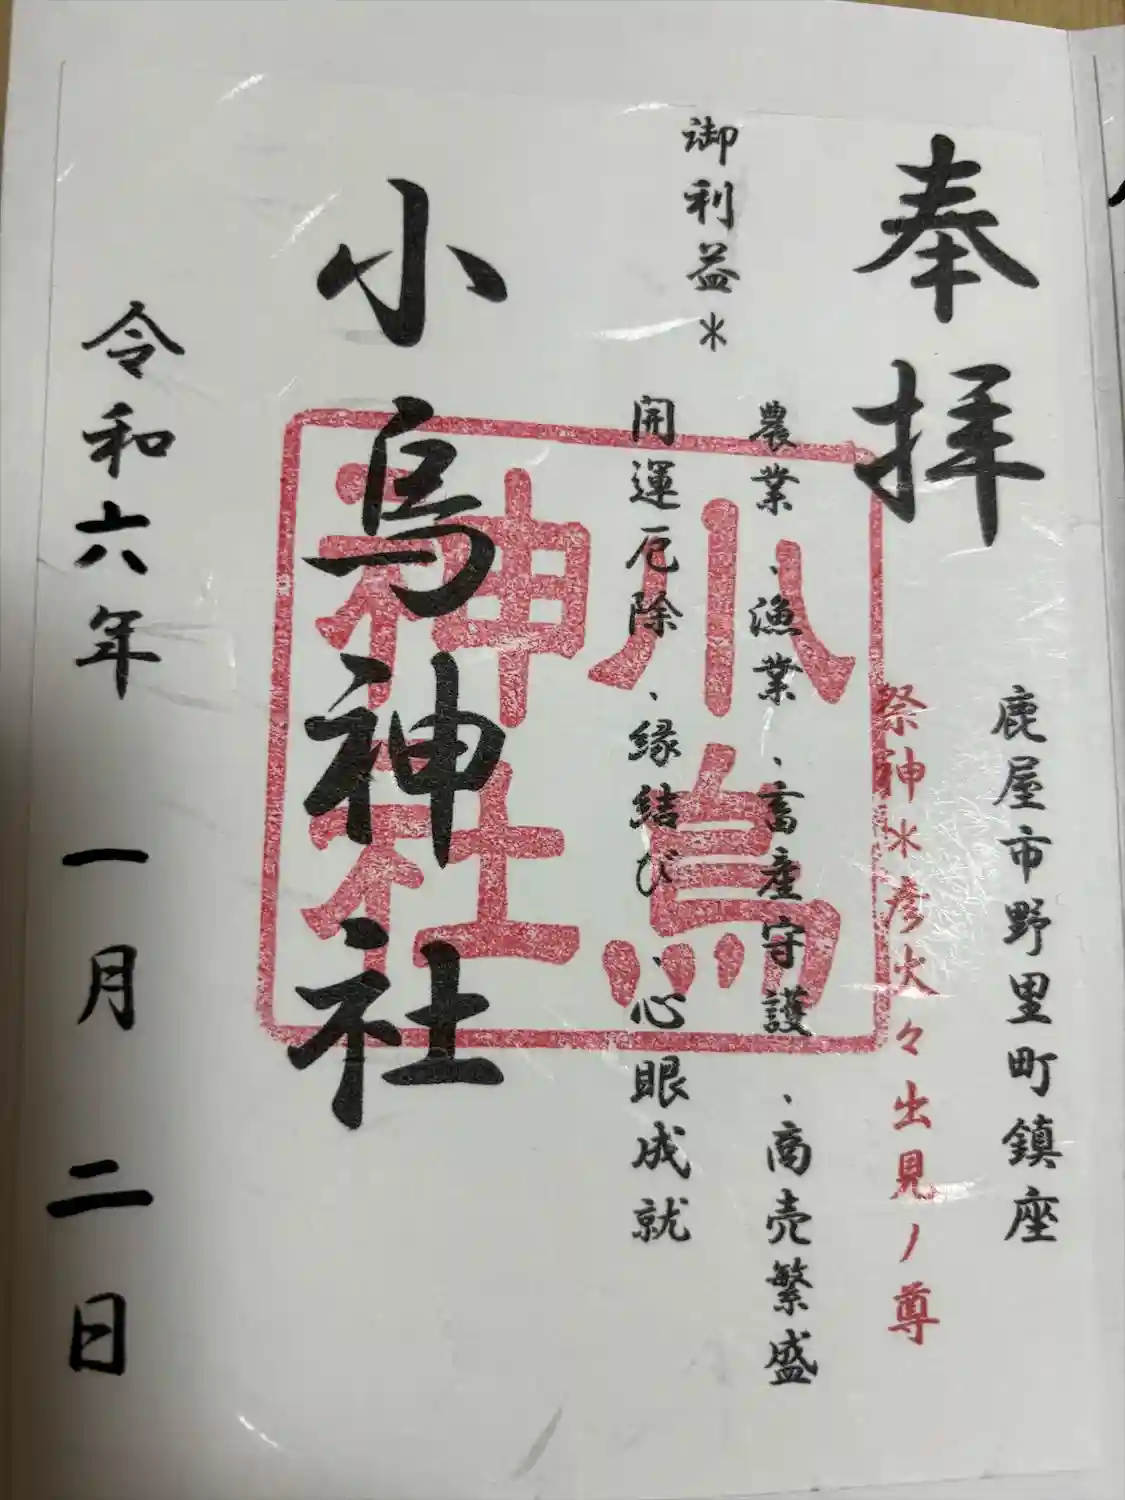 奉拝
鹿屋市野里町鎮座
祭神＊彦火々出見ノ尊
農業、漁業、畜産守護、商売繁盛
御利益＊
開運厄除、縁結び、心眼成就
小烏神社
小烏
神社
令和六年 一月 二日